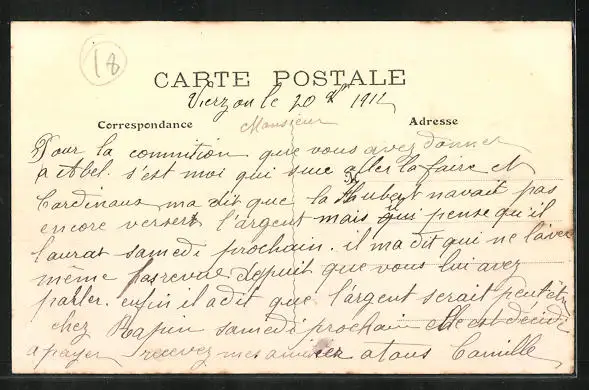 18
CARTE POSTALE
Vierzon le 20 1912
Correspondance Monsieur Adresse
Pour la commition que vous avez donner
a Abel. s'est moi qui sui aller la faire et
Cardinaux ma dit que la Thubert navait pas
encore versert l'argent mais qui pense qu'il
laurat samedi prochain. il ma dit qui ne l'avez
même pas revue depuit que vous lui avez
parler. enfin il a dit que l'argent serait peut êtr
chez Rapin samedi prochain elle est décidé
a payer recevez mes amitier a tous Camille